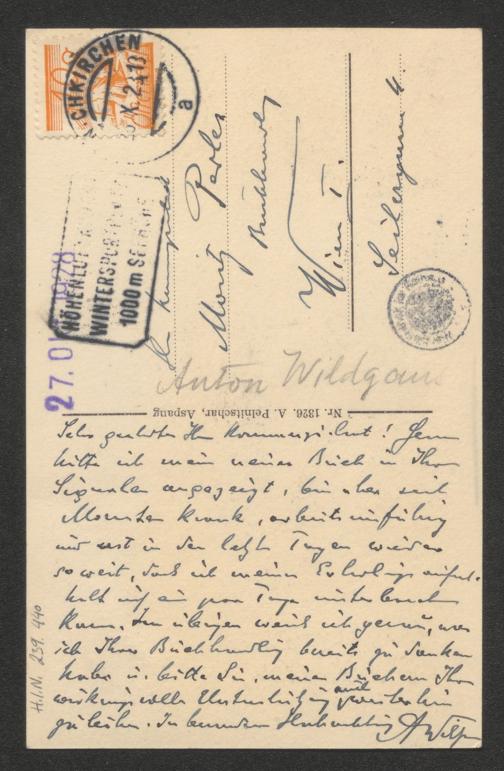 10g
CHKIRCHEN
X. 28
a
HÖHENLUFT
WINTERSPORT
1000 m SEEHÖHE
27. OK 1928
Moritz Perles
Buchhandlg
Wien I.
Seilergasse 4
Anton Wildgans
Nr. 1326. A. Pelnitschar, Aspang
Sehr geehrter Herr Kommerzialrat! Gern
hätte ich mein neues Buch in Ihren
Signalen angezeigt, bin aber seit
Monaten krank, arbeitsunfähig
und erst in den letzten Tagen wieder
so weit, daß ich meinen Erholungsaufent-
halt auf ein paar Tage unterbrechen
kann. Im übrigen weiß ich genau, was
ich Ihrer Buchhandlung bereits zu danken
habe u. bitte Sie, meinen Büchern Ihre
wirkungsvolle Unterstützung auch weiterhin
zu leihen. In besonderer Hochachtung AWildgans
H.I.N. 239.440